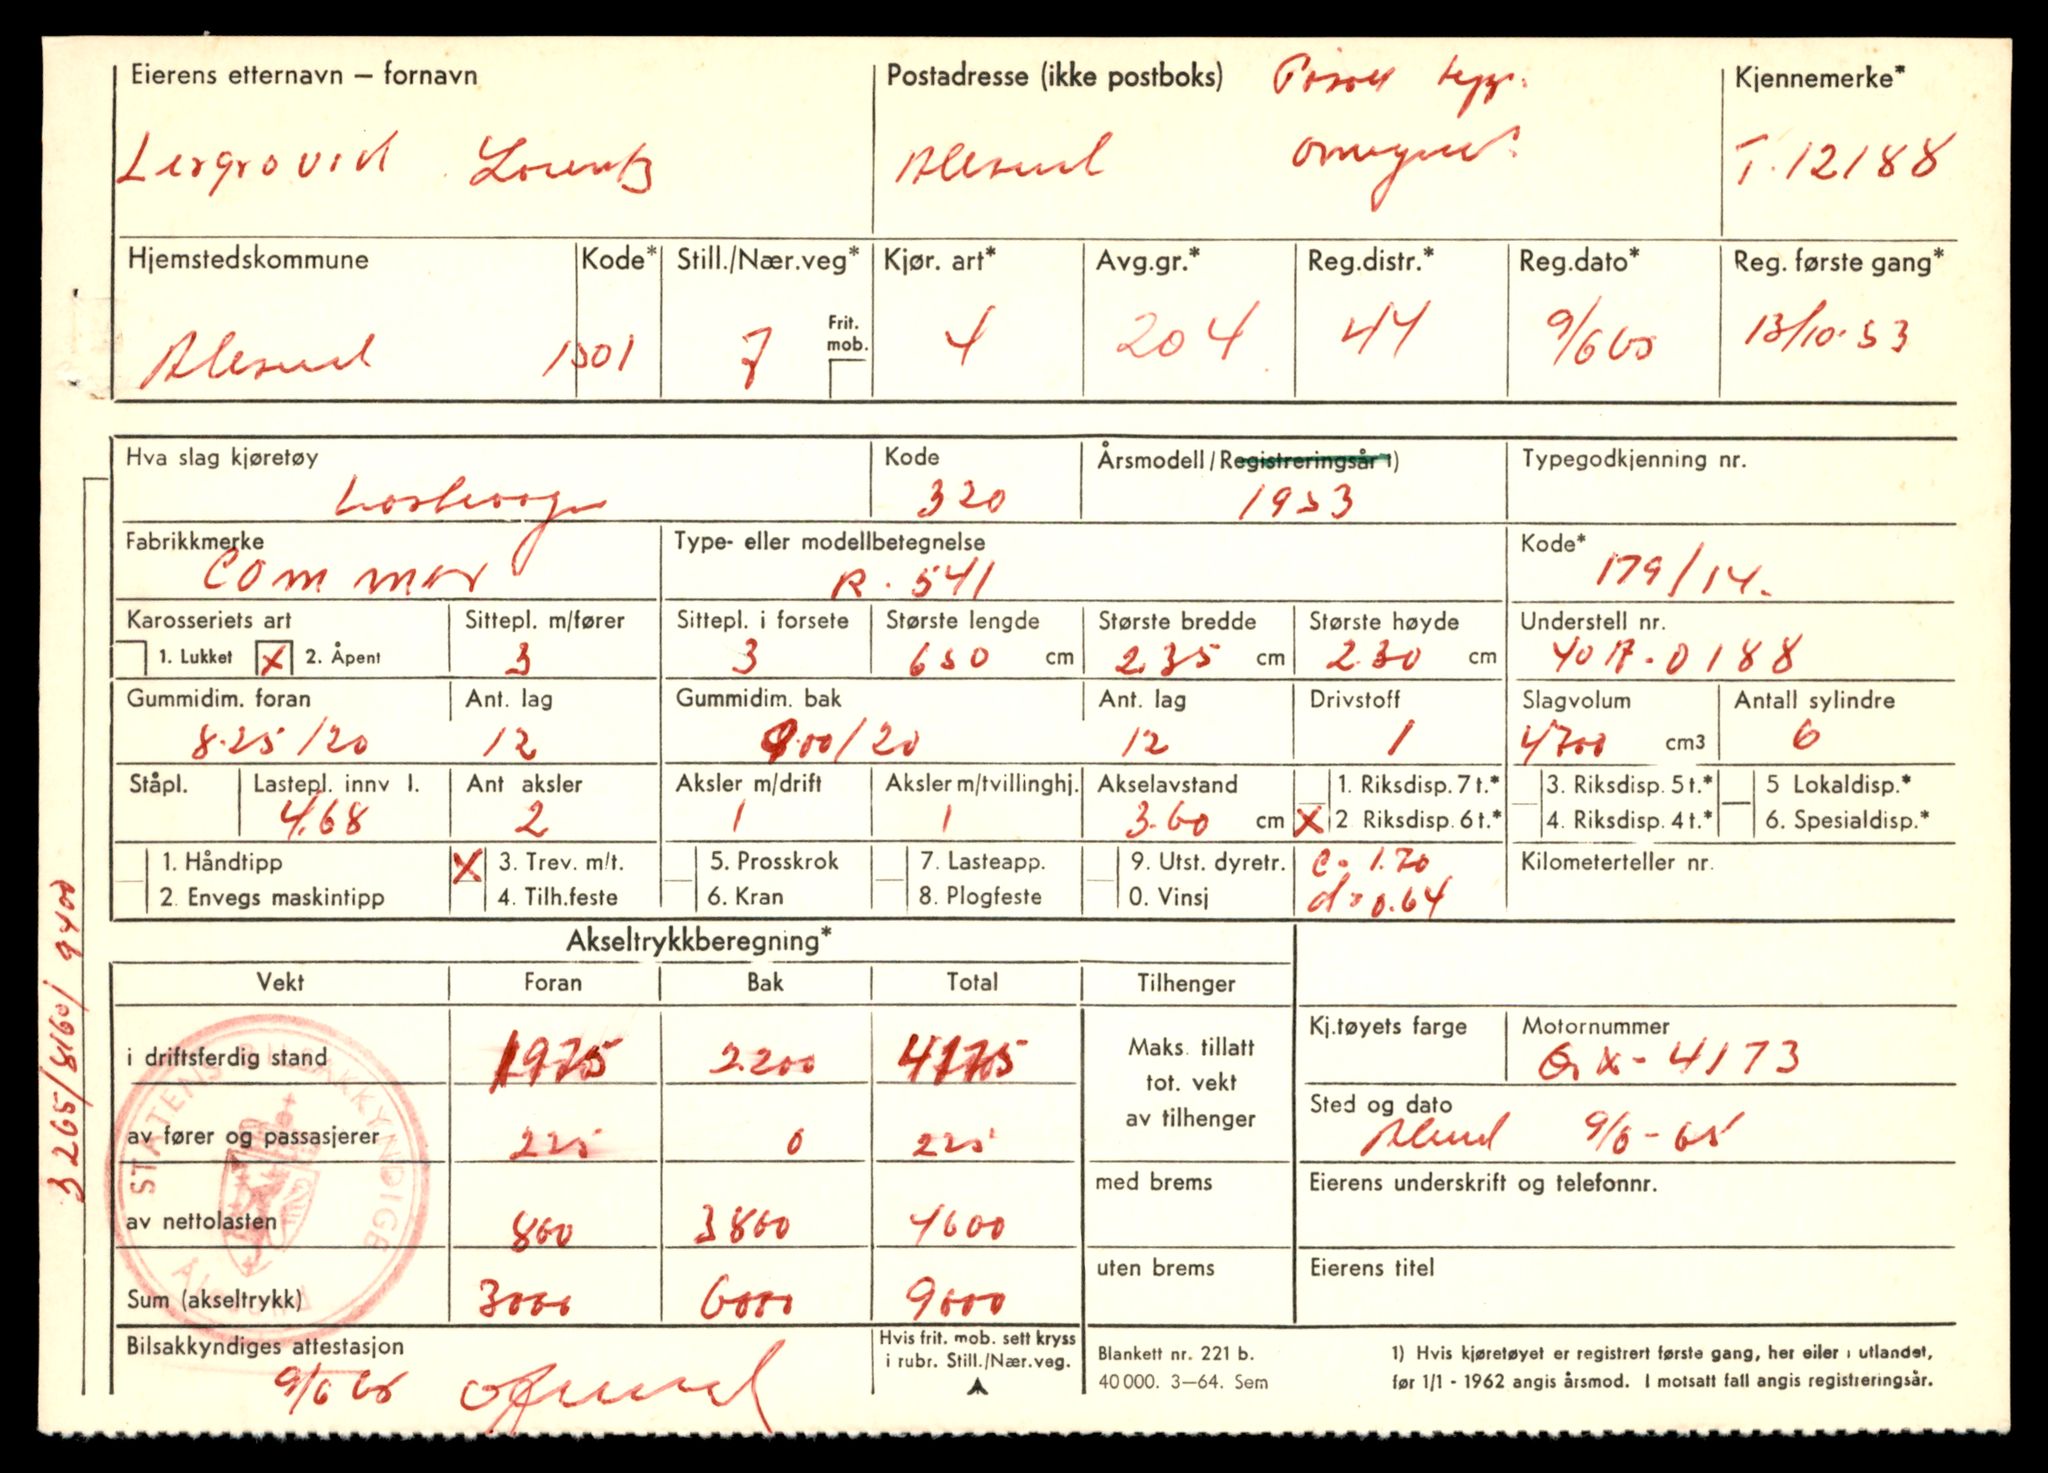 Eierens etternavn – fornavn Postadresse (ikke postboks) Kjennemerke*
Lergrovid Lorentz Ålesund T.12188
Hjemstedskommune Kode* Still./Nær.veg* Kjør. art* Avg.gr.* Reg.distr.* Reg.dato* Reg. første gang*
Frit. mob.
Ålesund 1501 7 4 204 44 9/6 65 13/10-53
Hva slag kjøretøy Kode Årsmodell / Registreringsår 1) Typegodkjenning nr.
320 1953
Fabrikkmerke Type- eller modellbetegnelse Kode*
Commer R. 541 179/14.
Karosseriets art Sittepl. m/fører Sittepl. i forsete Største lengde Største bredde Største høyde Understell nr.
1. Lukket X 2. Åpent 3 3 650 cm 2.35 cm 2.30 cm 40A-0188
Gummidim. foran Ant. lag Gummidim. bak Ant. lag Drivstoff Slagvolum Antall sylindre
8.25/20 12 9.00/20 12 1 4700 cm3 6
Ståpl. Lastepl. innv l. Ant aksler Aksler m/drift Aksler m/tvillinghj. Akselavstand 1. Riksdisp. 7 t.* 3. Riksdisp. 5 t.* 5 Lokaldisp.*
4.68 2 1 1 3.60 cm X 2 Riksdisp. 6 t.* 4. Riksdisp. 4 t.* 6. Spesialdisp.*
1. Håndtipp X 3. Trev. m/t. 5. Prosskrok 7. Lasteapp. 9. Utst. dyretr. c = 1.70 Kilometerteller nr.
2. Envegs maskintipp 4. Tilh.feste 6. Kran 8. Plogfeste 0. Vinsj d = 0.64
3265/8160/9400
Akseltrykkberegning*
Vekt Foran Bak Total Tilhenger
i driftsferdig stand 1975 2.200 4175 Maks. tillatt tot. vekt av tilhenger
Kj.tøyets farge Motornummer
GX-4173
av fører og passasjerer 225 0 225
Sted og dato
9/6-65
av nettolasten 800 3800 4600 med brems
Eierens underskrift og telefonnr.
Sum (akseltrykk) 3000 6000 9000 uten brems
Eierens titel
STATENS BILSAKKYNDIGE
ÅLESUND
Bilsakkyndiges attestasjon
9/6 65
Hvis frit. mob. sett kryss
i rubr. Still./Nær.veg.
Blankett nr. 221 b.
40 000. 3–64. Sem
1) Hvis kjøretøyet er registrert første gang, her eller i utlandet,
før 1/1 - 1962 angis årsmod. I motsatt fall angis registreringsår.